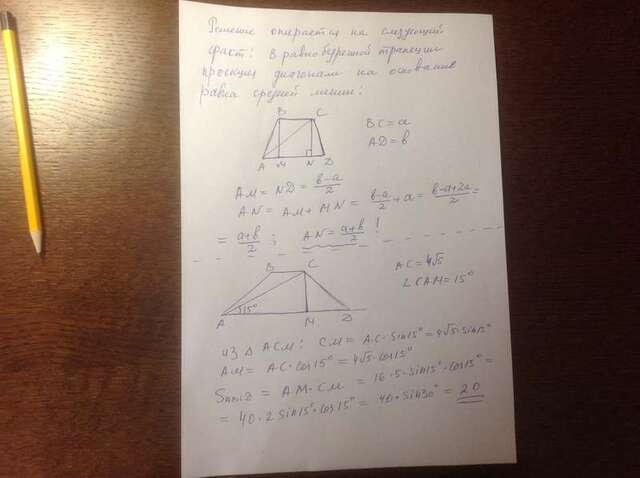 Решение опирается на следующий
факт: в равнобедренной трапеции
проекция диагонали на основание
равна средней линии:
B C
A M N D
BC = a
AD = b
AM = ND = \frac{b-a}{2}
AN = AM + MN = \frac{b-a}{2} + a = \frac{b-a+2a}{2} =
= \frac{a+b}{2} ; AN = \frac{a+b}{2} !
B C
A 15° M D
AC = 4√5
∠CAM = 15°
из Δ ACM: CM = AC · Sin15° = 4√5 · sin15°
AM = AC · cos15° = 4√5 · cos15°
= AM · CM = 16 · 5 · sin15° · cos15° =
= 40 · 2 Sin15° · cos15° = 40 · Sin30° = 20